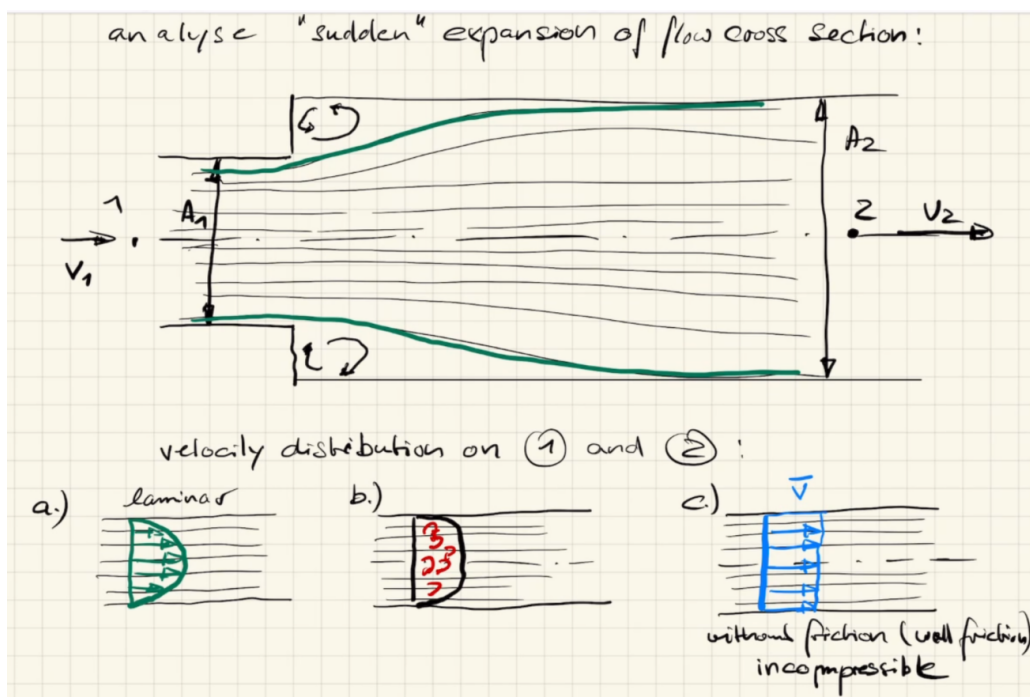 analyse "sudden" expansion of flow cross section:
A1
A2
1
V1
2
V2
velocity distribution on 1 and 2 :
a.) laminar
b.)
c.) V̅
without friction (wall friction)
incopmpressible